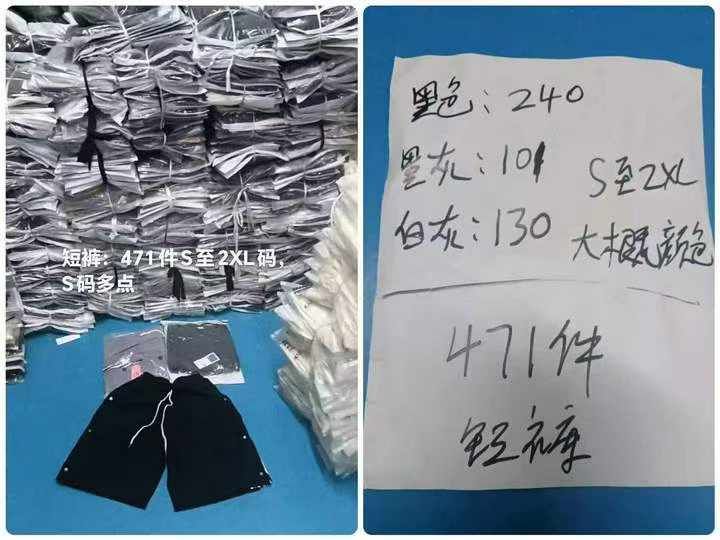 短裤：471件S至2XL码，
S码多点
黑色：240
黑灰：101
S至2XL
白灰：130
大概颜色
471件
短裤